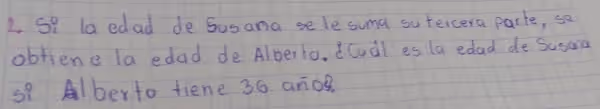 2. Si la edad de Susana se le suma su tercera parte, se
obtiene la edad de Alberto. ¿Cuál es la edad de Susana
si Alberto tiene 36 años